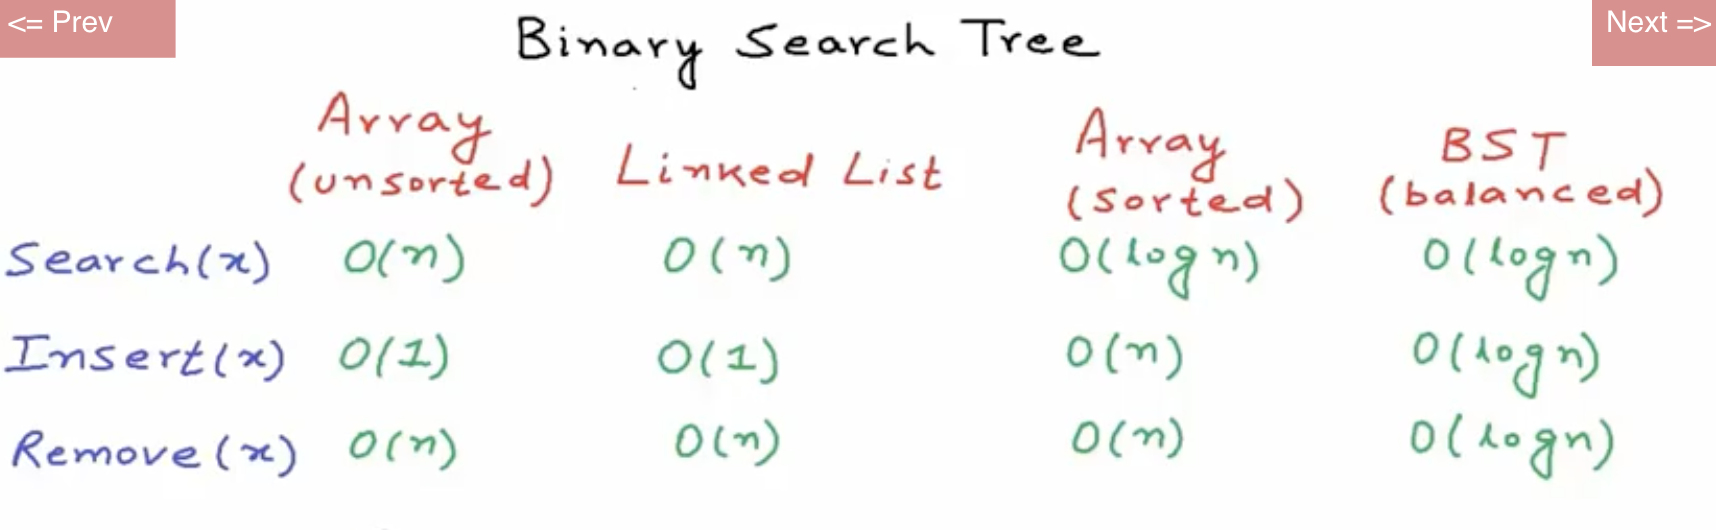 <= Prev
Next =>
Binary Search Tree
Array (unsorted) Linked List Array (sorted) BST (balanced)
Search(x) O(n) O(n) O(log n) O(log n)
Insert(x) O(1) O(1) O(n) O(log n)
Remove(x) O(n) O(n) O(n) O(log n)